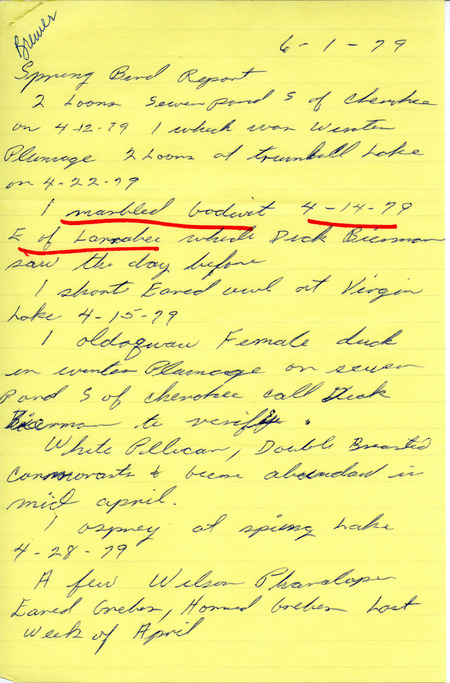 Brewer
6-1-79
Spring Bird Report
2 Loons Sewer pond S of Cherokee
on 4-12-79 1 which was Winter
Plumage 2 Loons at trumbull Lake
on 4-22-79
1 marbled godwit 4-14-79
E of Larrabee which Dick Bierman
saw the day before
1 short Eared owl at Virgin
Lake 4-15-79
1 oldsquaw Female duck
in winter Plumage on sewer
Pond S of cherokee call Dick
Bierman to verify.
White Pellican, Double Breasted
Cormorants abundant in
mid april.
1 osprey at spring Lake
4-28-79
A few Wilson Phanalope
Eared Grebes, Horned Grebes Last
Week of April